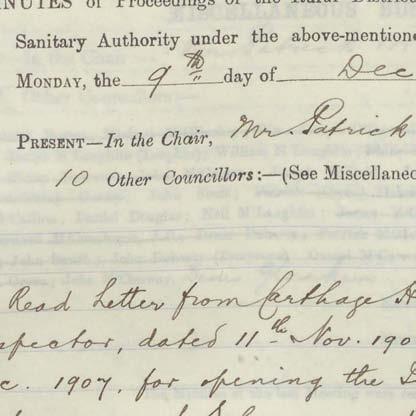 MINUTES of Proceedings of the Rural District
Sanitary Authority under the above-mentione
MONDAY, the 9th day of Dec
PRESENT—In the Chair, Mr. Patrick
10 Other Councillors:—(See Miscellaneo
Read Letter from Carthage H
spector, dated 11th Nov. 190
c. 1907, for opening the